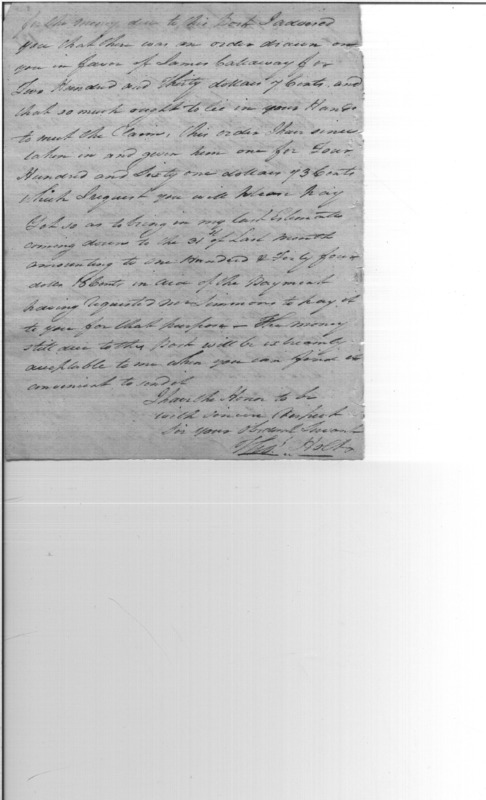 the money due to this Post I advised
you that there was an order drawn on
you in favor of James Callaway for
Two Hundred and Thirty dollars 7 Cents and
that so much ought to lie in your Hands
to meet the Same, this order I have since
taken in and given him one for Four
Hundred and Sixty one dollars 73 Cents
Which I request you will Please Pay
so as to bring in my last Estimate
coming down to the 31st of Last Month
amounting to One Hundred & Forty four
dolls 18 Cents in of the Payment
having requested Mr Simmons to pay it
to you for that purpose - The money
still due to this Post will be
acceptable to me when you can find it
convenient to
I have the Honor to be
with sincere Respect
Sir your Obedient Servant
Holt